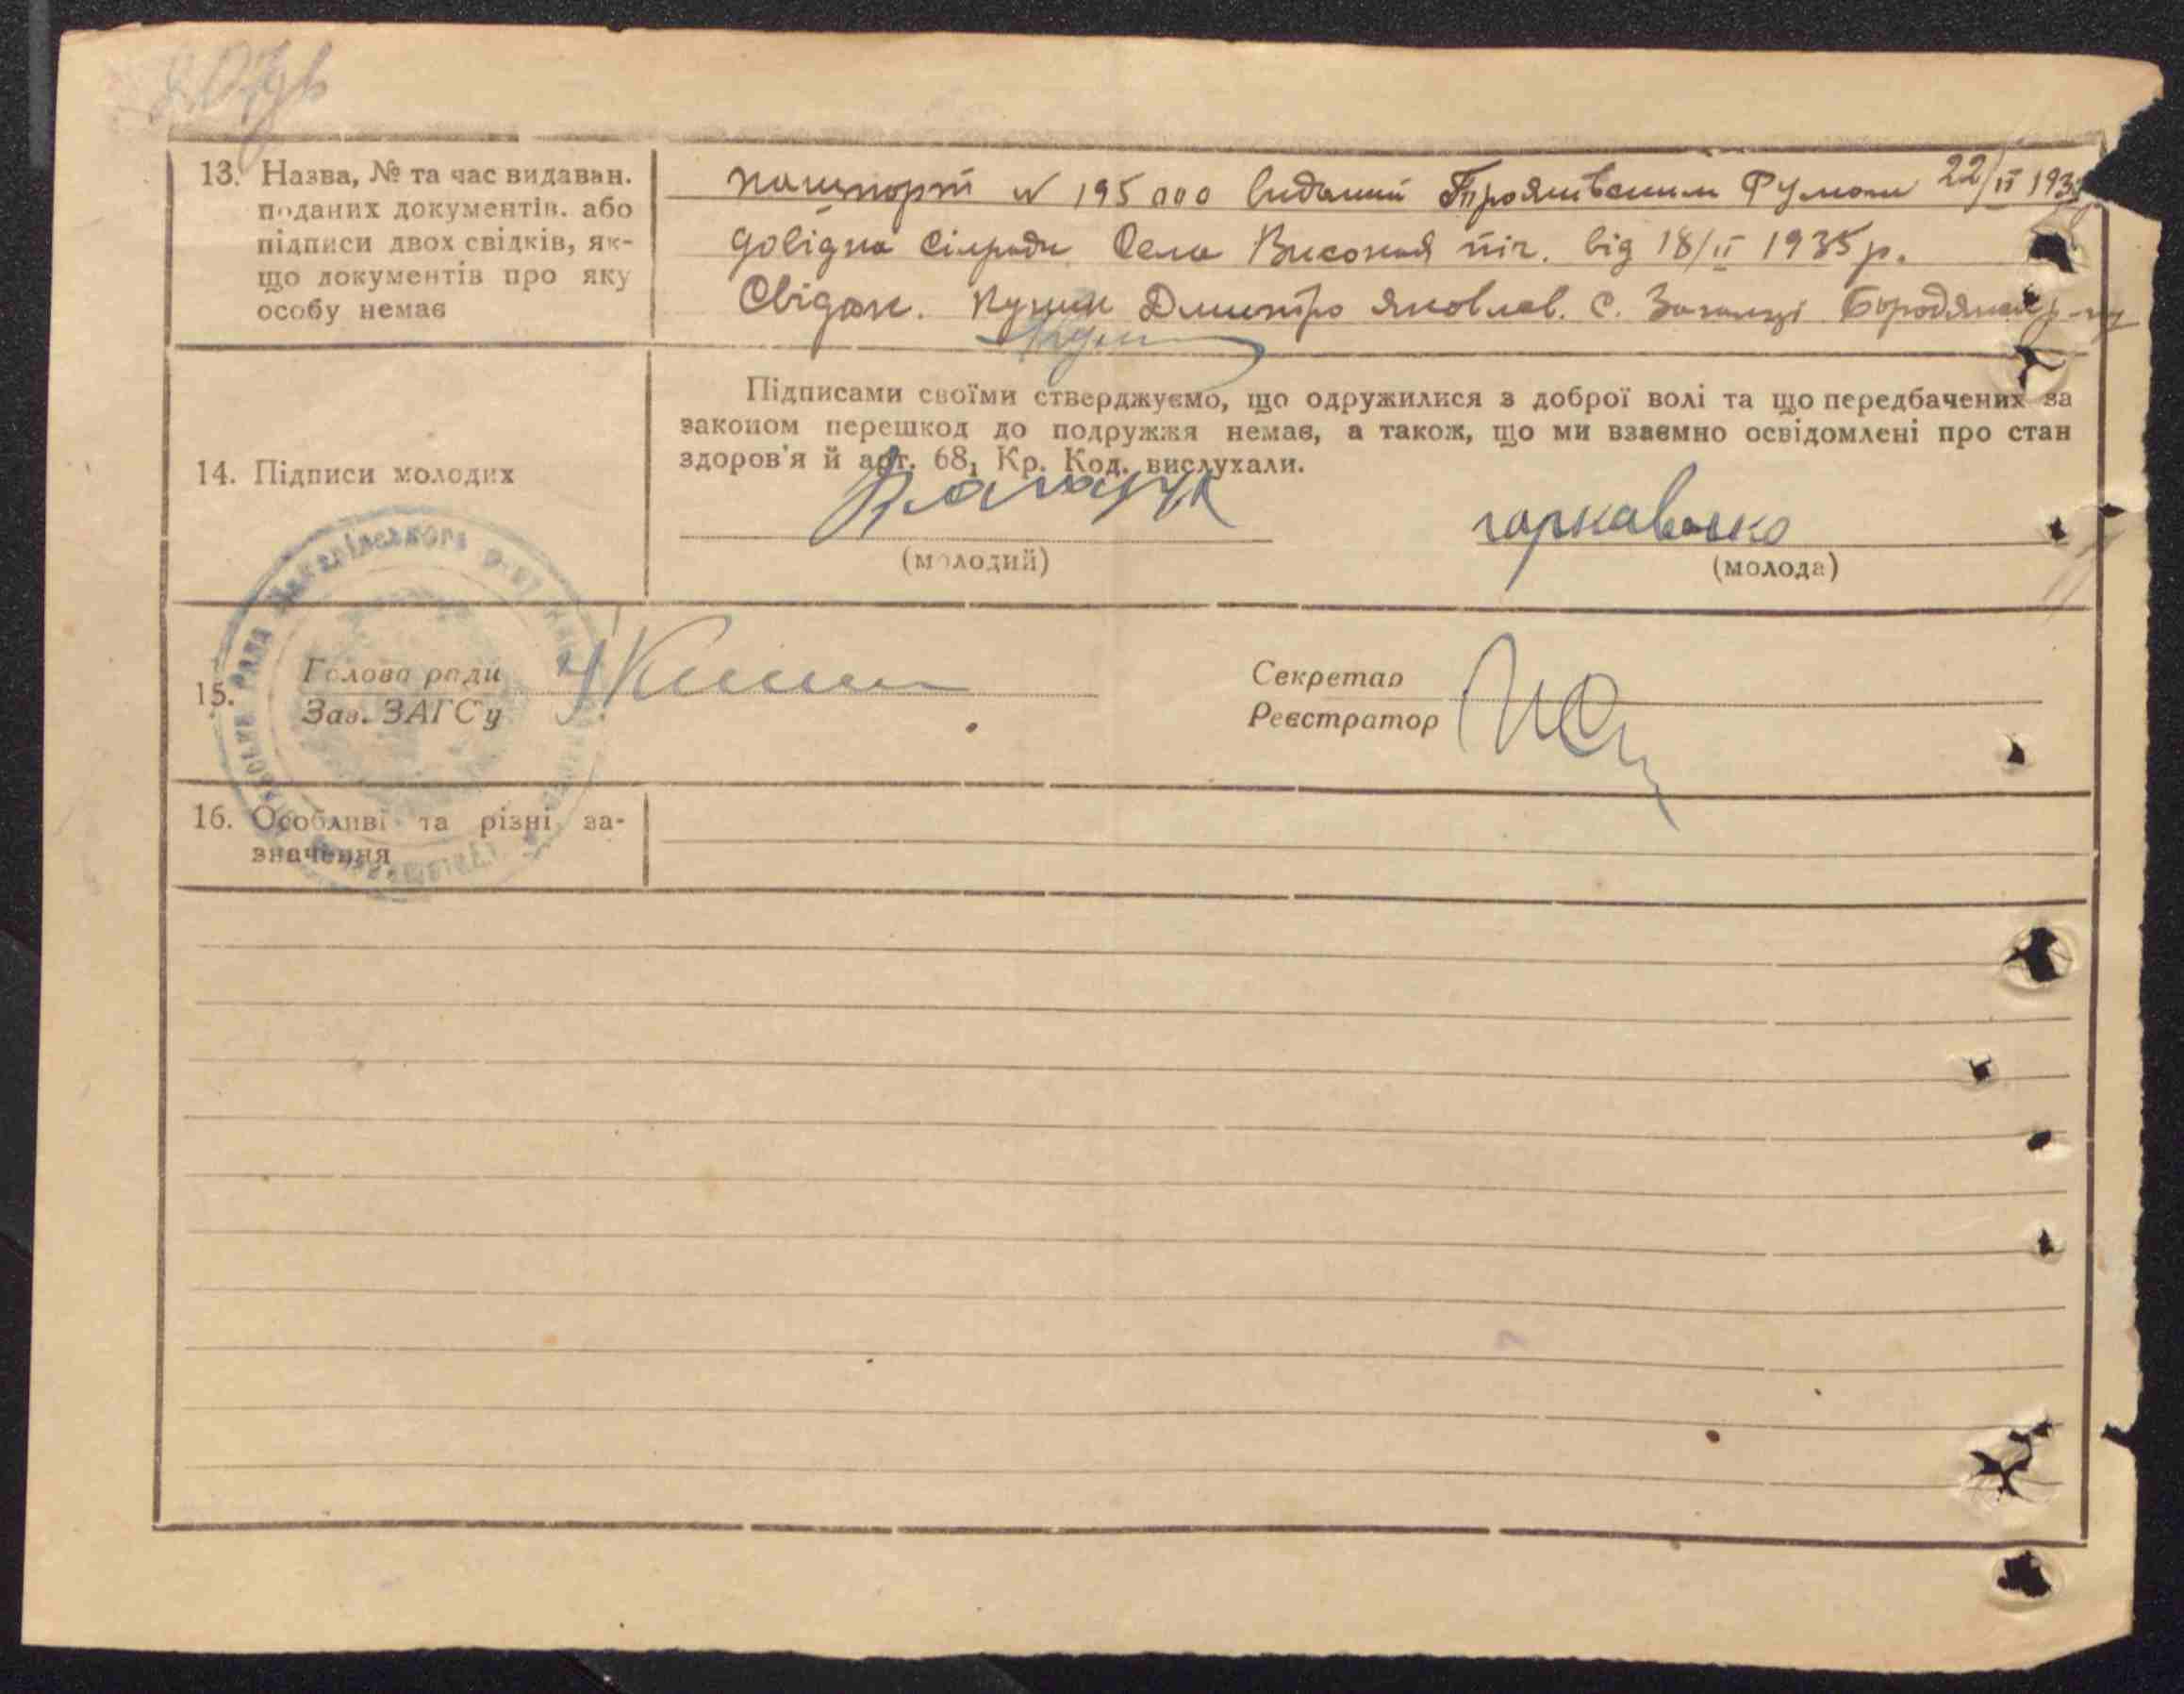 13. Назва, № та час видаван.
поданих документів. або
підписи двох свідків, як-
що документів про яку
особу немає
пашпорт N 195000 виданий 22/II 193
довідка Сілради Села Високая піч. від 18/II 1935 р.
Свідок. Дмитро Яковлев. с.
14. Підписи молодих
Підписами своїми стверджуємо, що одружилися з доброї волі та що передбачених за
законом перешкод до подружжя немає, а також, що ми взаємно освідомлені про стан
здоров'я й арт. 68, Кр. Код. вислухали.
гаркавенко
(молодий)
(молода)
15.
Голова ради
Зав. ЗАГСу
Секретар
Реєстратор
16. Особливі та різні за-
значення